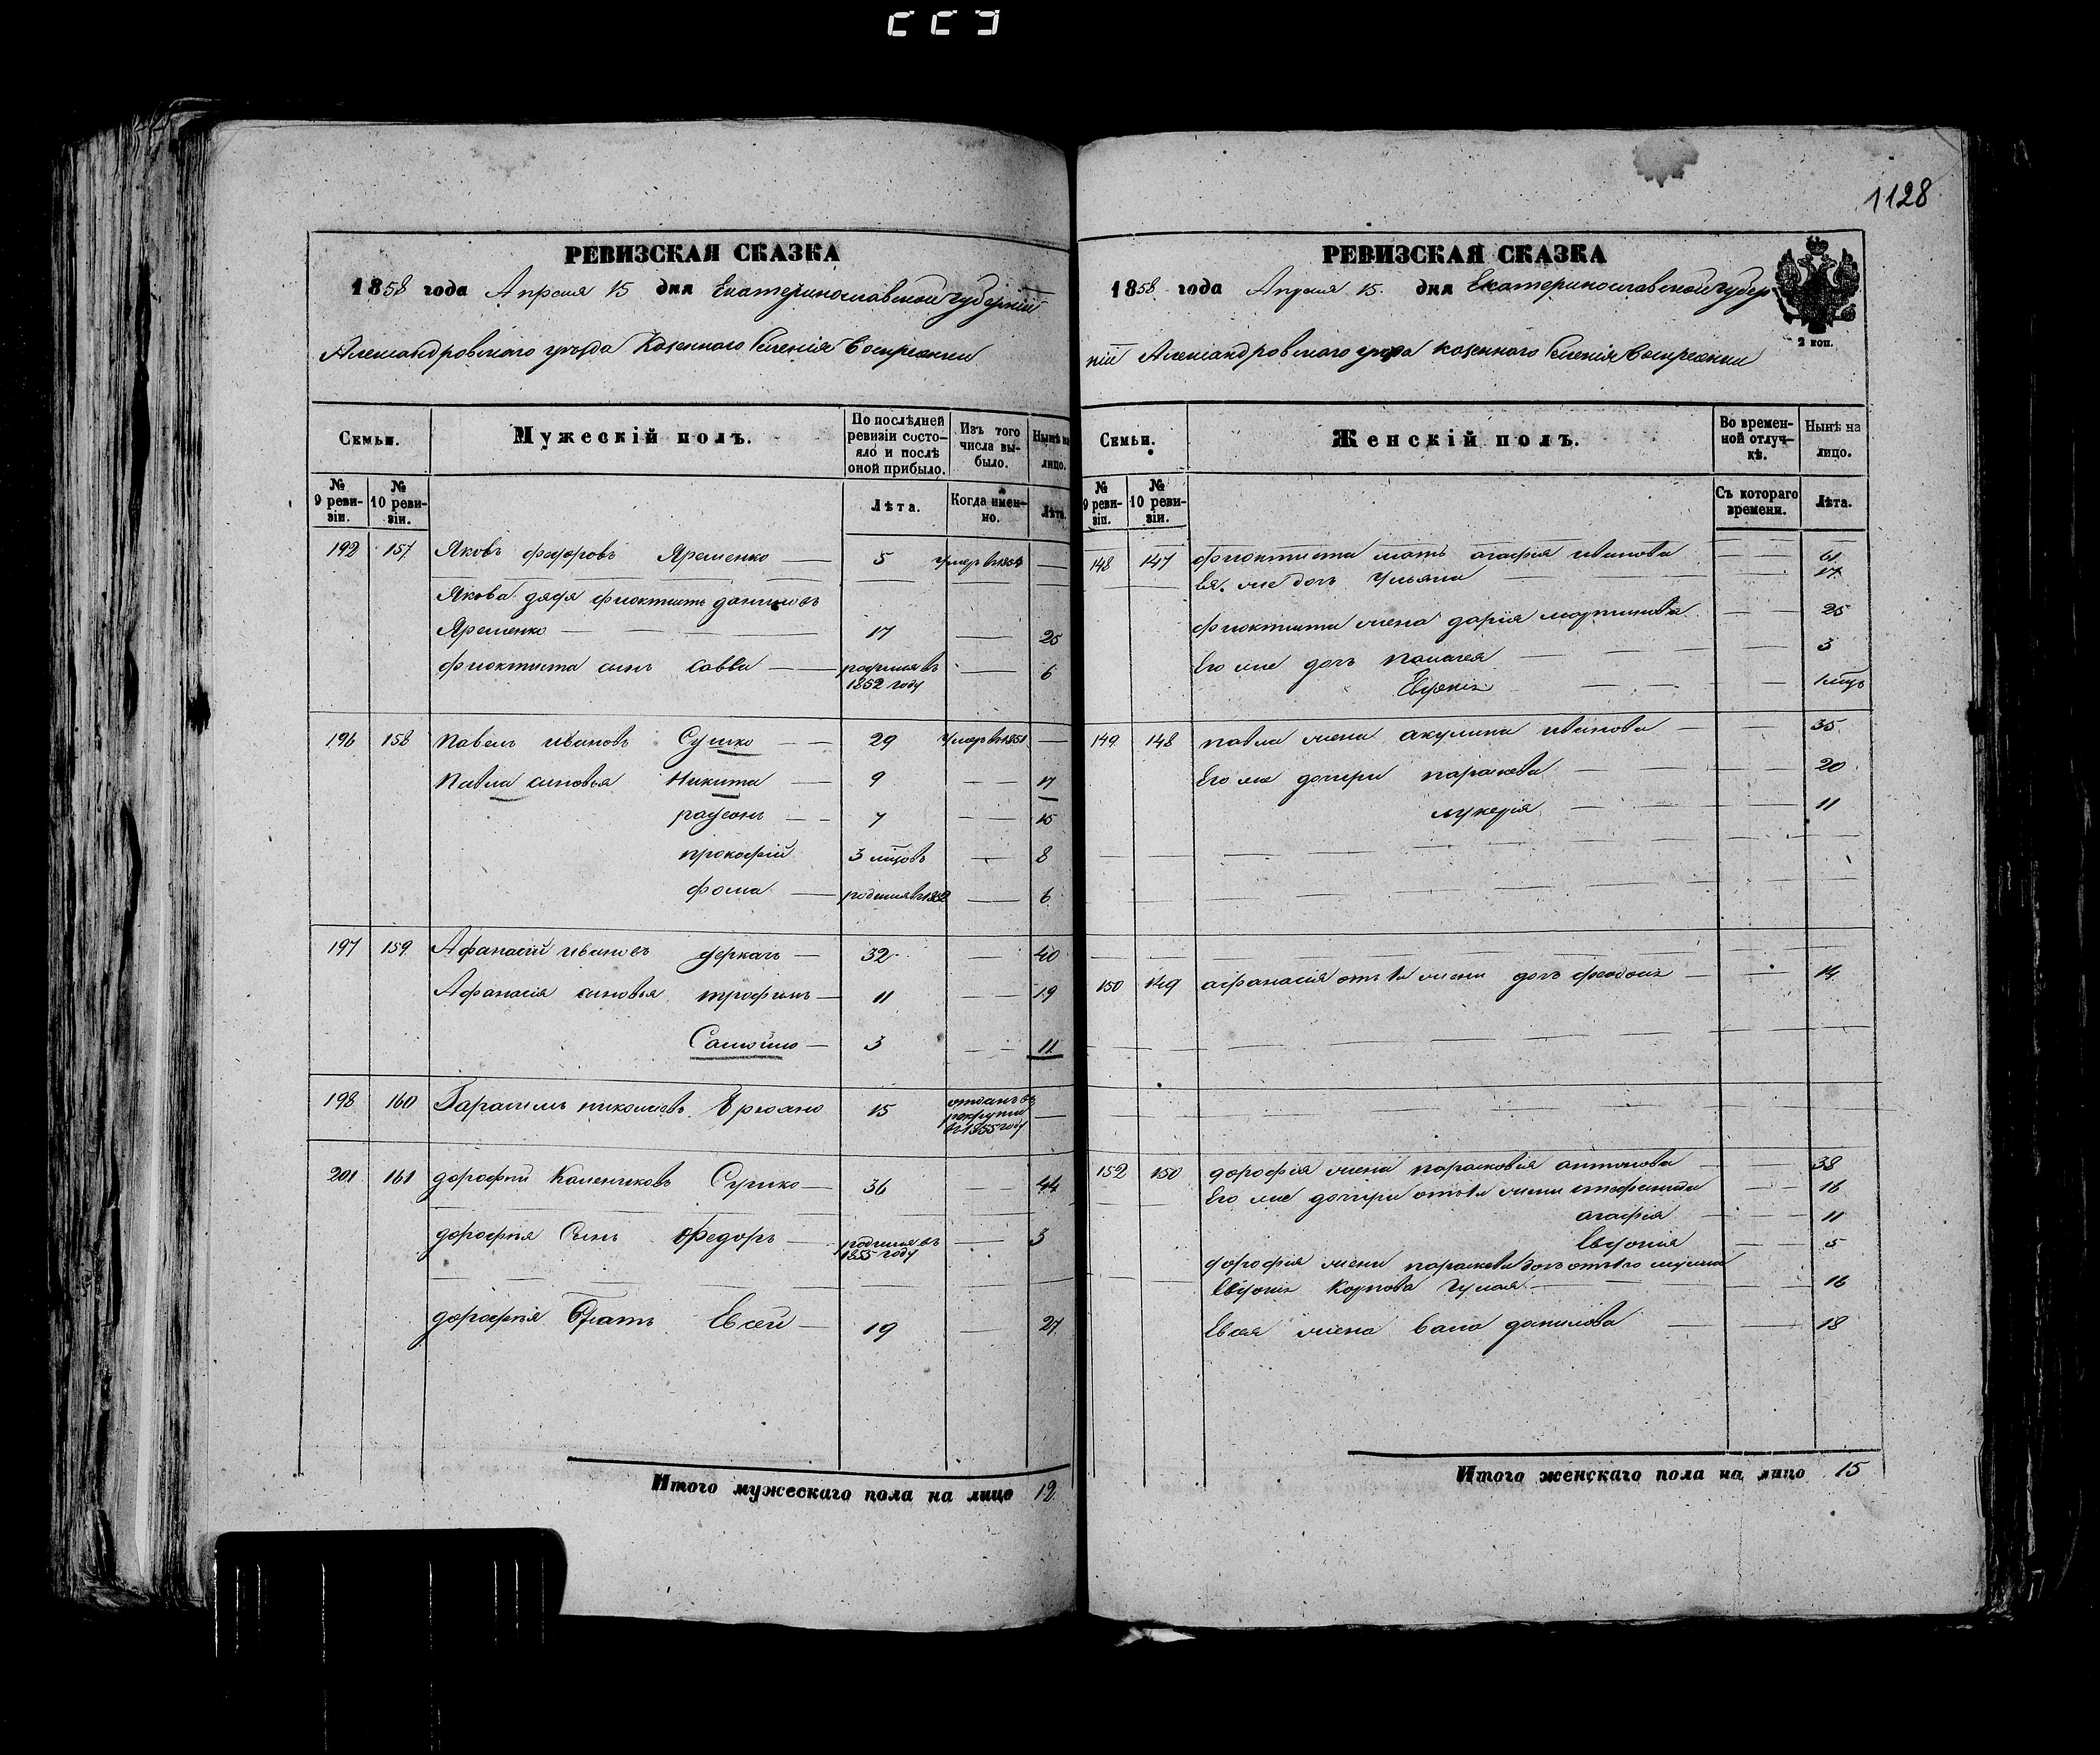 1128
РЕВИЗСКАЯ СКАЗКА
1858 года Апреля 15 дня Екатеринославской губерніи
Александровского уезда Казенного Селенія Воскресенки
Семьи.
Мужескій полъ.
По послѣдней ревизіи состояло и послѣ оной прибыло.
Изъ того числа выбыло.
Нынѣ на лицо.
№ 9 ревизіи.
№ 10 ревизіи.
Лѣта.
Когда именно.
Лѣта.
192 157 Яковъ федоровъ Яременко 5 умеръ в 1854
Якова дядя фиоктистъ даниловъ
Яременко 17 25
фиоктиста сынъ савва родился въ 1852 году 6
196 158 павелъ ивановъ Сушко 29 умеръ в 1851
павла сыновья Никита 9 17
радионъ 7 15
прокофій 3 мцовъ 8
фома родился в 1852 6
197 159 Афанасій ивановъ деркачъ 32 40
Афанасія сыновья трофимъ 11 19
Самойло 3 11
198 160 Гарасимъ николаевъ 15 отданъ въ рекруты въ 1855 году
201 161 дорофей Сушко 36 44
дорофея Сынъ Федоръ родился въ 1855 году 3
дорофея братъ Евсей 19 27
Итого мужескаго пола на лицо 12
РЕВИЗСКАЯ СКАЗКА
1858 года Апреля 15 дня Екатеринославской губер
ніи Александровского уезда казенного Селенія Воскресенки
2 коп.
Семьи.
Женскій полъ.
Во временной отлучкѣ.
Нынѣ на лицо.
№ 9 ревизіи.
№ 10 ревизіи.
Съ котораго времени.
Лѣта.
148 147 фиоктиста мать агафія иванова 61
Ея же дочь Ульяна 17
фиоктиста жена дарія мартинова 25
Его же дочъ палагея 3
Евдокія 1 мцъ
149 148 павла жена акулина иванова 35
Его же дочери параскева 20
лукерія 11
150 149 афанасія отъ 1й жены дочъ феодосія 14
152 150 дорофея жена парасковія антонова 38
Его же дочери отъ 1й жены стефанида 16
агафія 11
Евдокія 5
дорофея жены параскеви дочъ отъ 1го мужа
Евдокія Карпова 16
Евсея жена данилова 18
Итого женскаго пола на лицо 15